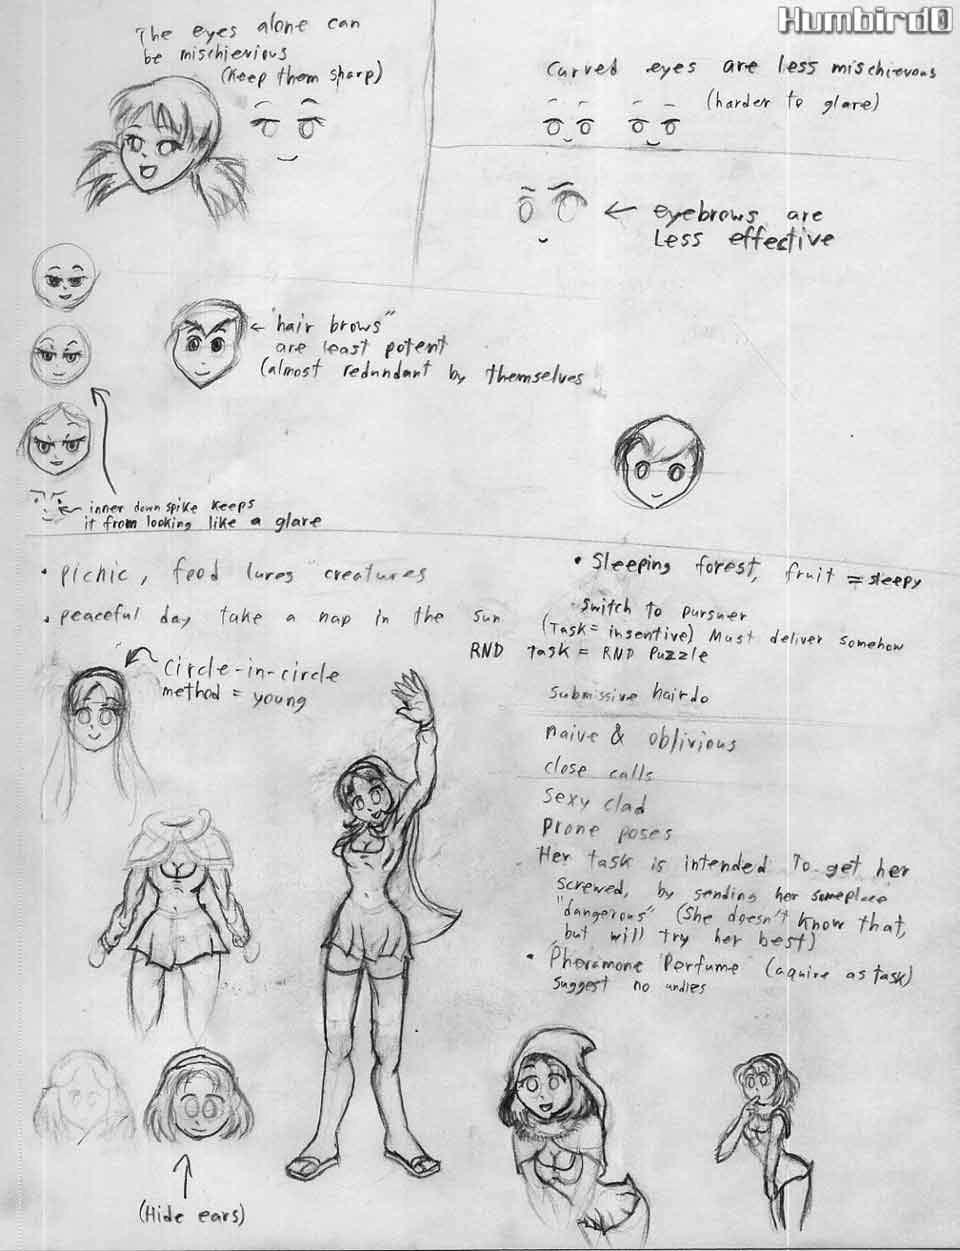 Humbird0
The eyes alone can
be mischievious
(keep them sharp)
Curved eyes are less mischievous
(harder to glare)
eyebrows are
Less effective
"hair brows"
are least potent
(almost redundant by themselves
inner down spike keeps
it from looking like a glare
• picnic, food lures creatures
• peaceful day take a nap in the sun
• Sleeping forest, fruit = sleepy
Switch to pursuer
(Task = insentive) Must deliver somehow
RND task = RND Puzzle
Circle-in-circle
method = young
submissive hairdo
naive & oblivious
close calls
Sexy clad
Prone poses
Her task is intended To get her
screwed, by sending her someplace
"dangerous" (She doesn't know that,
but will try her best)
• Pheramone Perfume (aquire as task)
suggest no undies
(Hide ears)